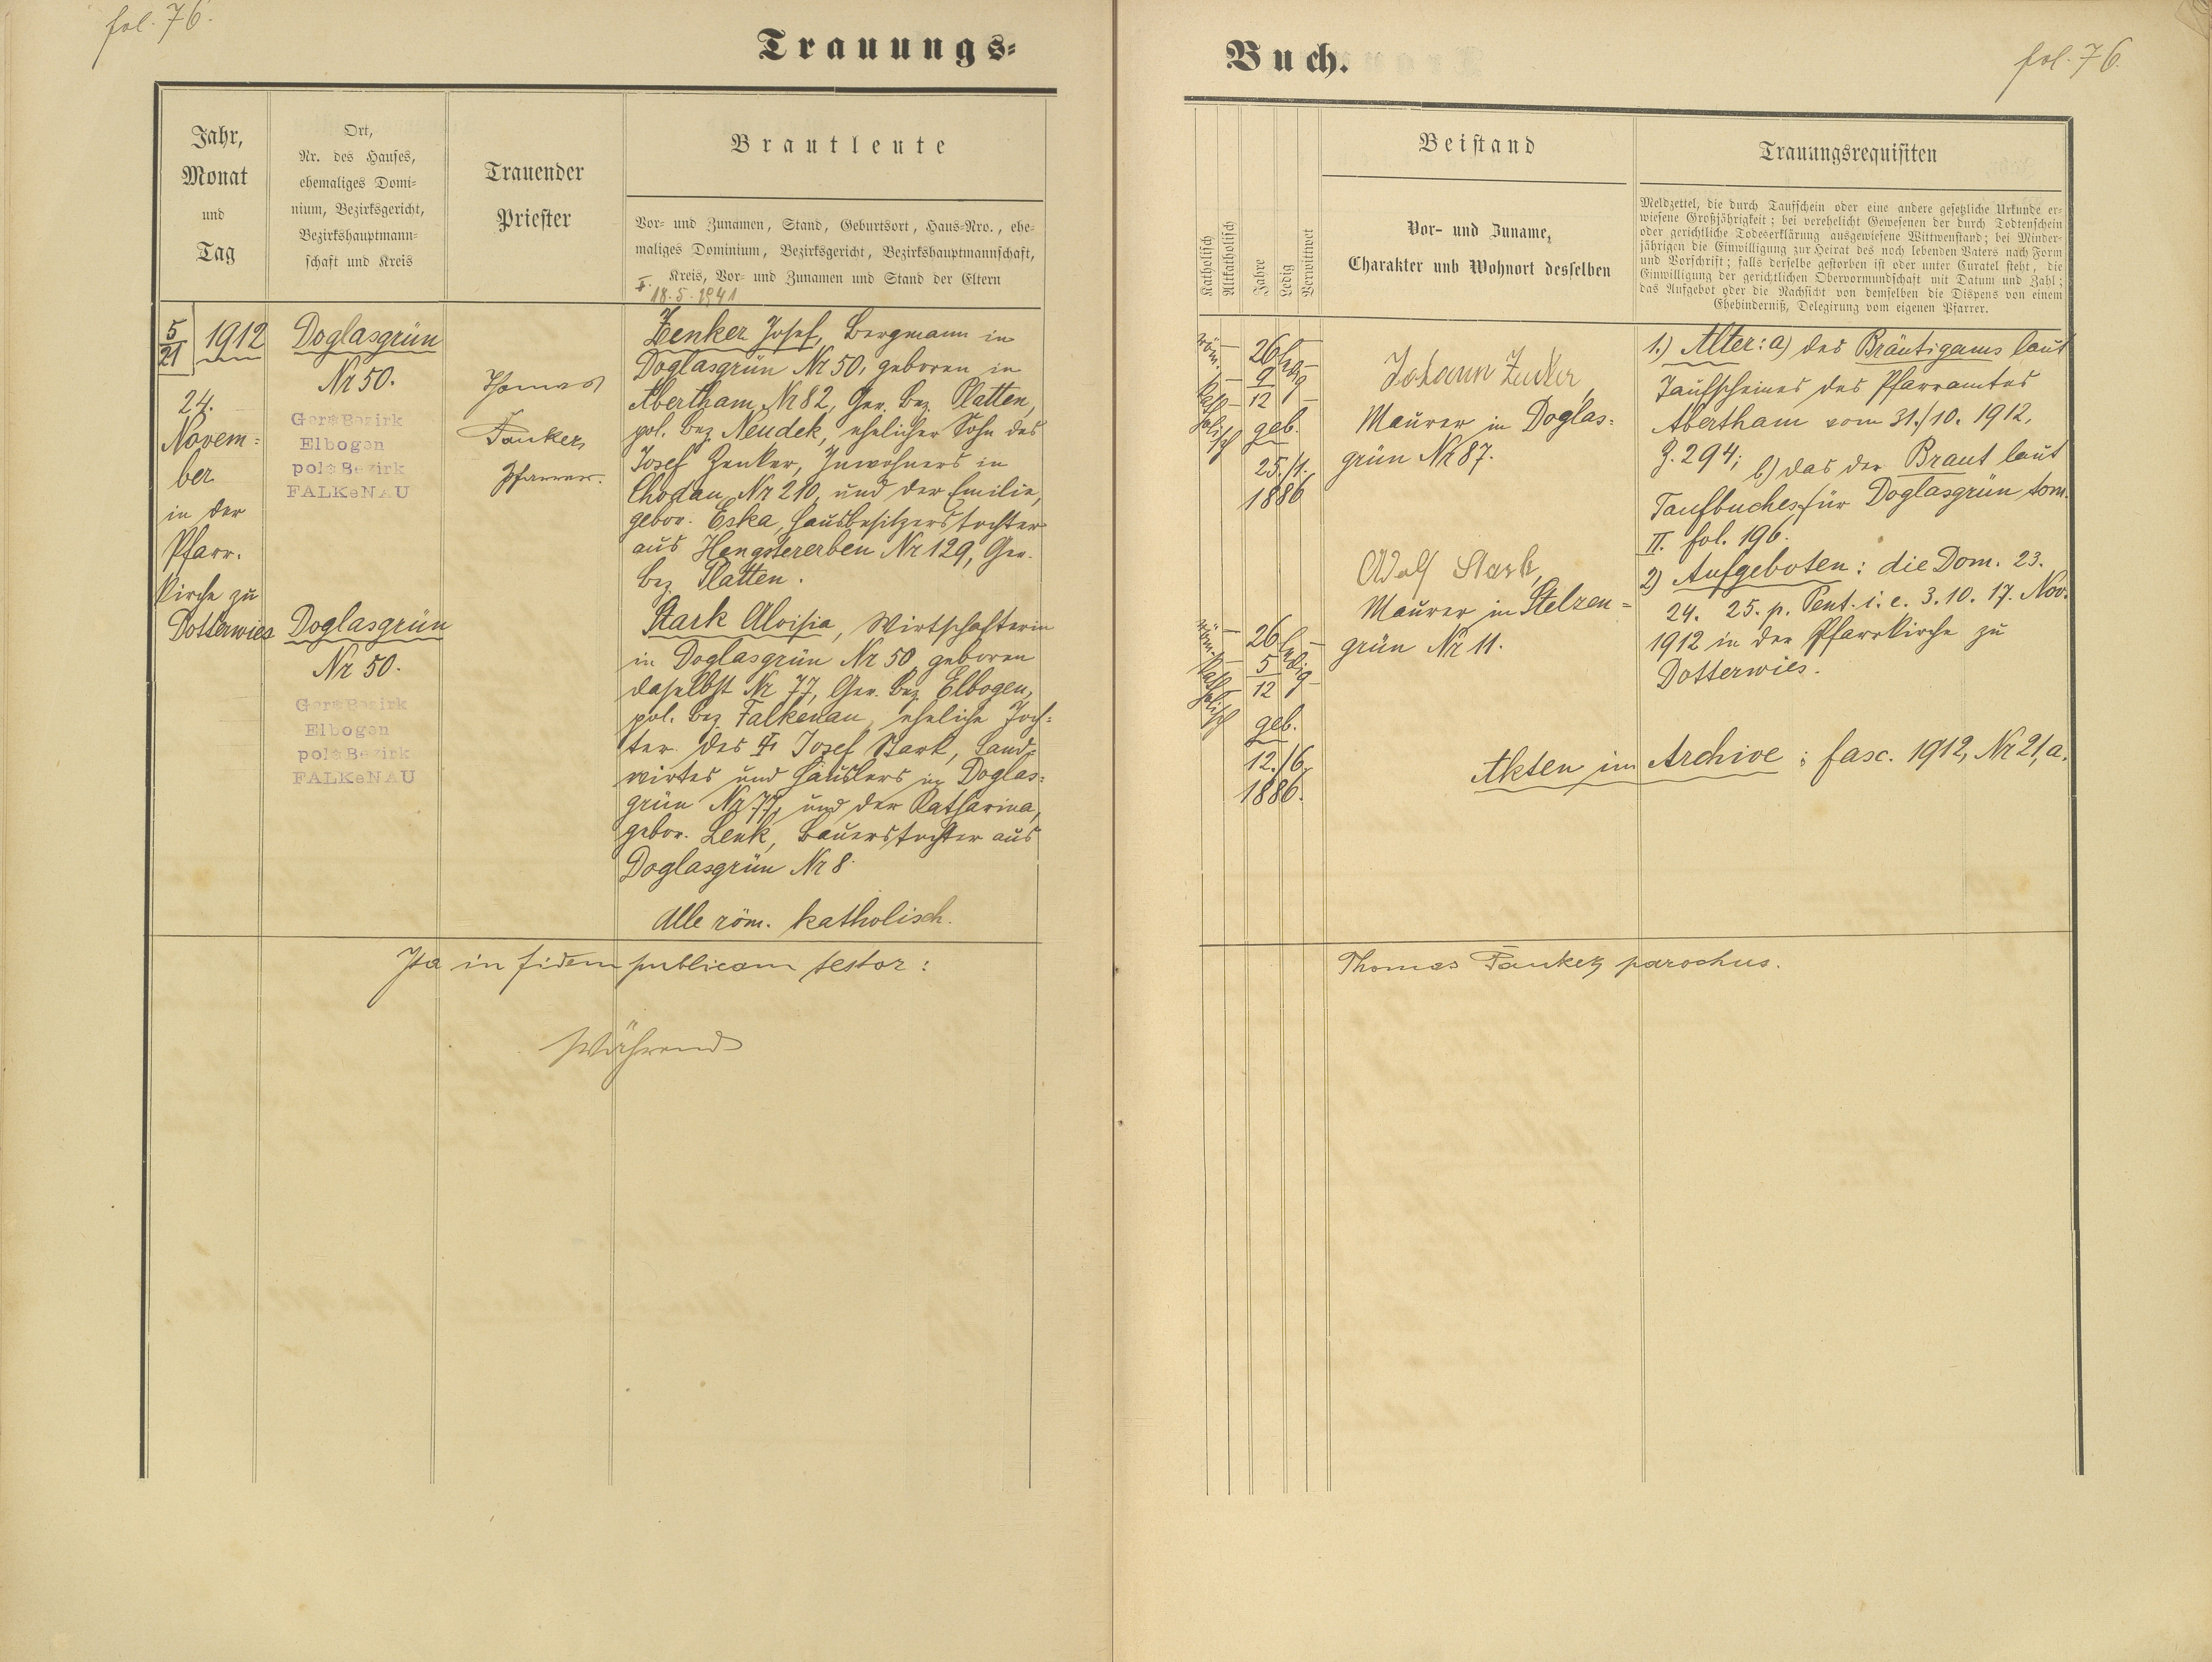 fol. 76.
Trauungs=
Jahr,
Monat
und
Tag
Ort,
Nr. des Hauses,
ehemaliges Domi=
nium, Bezirksgericht,
Bezirkshauptmann=
schaft und Kreis
Trauender
Priester
Brautleute
Vor- und Zunamen, Stand, Geburtsort, Haus-Nro., ehe=
maliges Dominium, Bezirksgericht, Bezirkshauptmannschaft,
Kreis, Vor- und Zunamen und Stand der Eltern
18.5.1941
5
21
1912
24.
Novem=
ber
in der
Pfarr.
kirche zu
Dotterwies
Doglasgrün
Nr 50.
Ger. Bezirk
Elbogen
pol. Bezirk
FALKeNAU
Doglasgrün
Nr 50.
Ger. Bezirk
Elbogen
pol. Bezirk
FALKeNAU
Thomas
Pfarrer.
Zenker Josef, Bergmann in
Doglasgrün Nr 50, geboren in
Abertham Nr 82, Ger. Bez. Platten,
pol. Bez. Neudek, ehelicher Sohn des
Josef Zenker, Inwohners in
Chodau Nr 210, und der Emilie,
gebor. Eska, Hausbesitzerstochter
aus Hengstererben Nr 129, Ger.
Bez. Platten.
Stark Aloisia, Wirtschafterin
in Doglasgrün Nr 50, geboren
daselbst Nr 77, Ger. Bez. Elbogen,
pol. Bez. Falkenau, eheliche Toch=
ter des † Josef Stark, Land=
wirtes und Häuslers in Doglas=
grün Nr 77, und der Katharina,
gebor. Lenk, Bauerstochter aus
Doglasgrün Nr 8.
Alle röm. katholisch.
Ita in fidem publicam testor:
Während
Buch.
fol. 76.
Katholisch
Altkatholisch
Jahre
Ledig
Verwittwet
Beistand
Vor- und Zuname,
Charakter und Wohnort desselben
Trauungsrequisiten
Meldzettel, die durch Taufschein oder eine andere gesetzliche Urkunde er=
wiesene Großjährigkeit; bei verehelicht Gewesenen der durch Todtenschein
oder gerichtliche Todeserklärung ausgewiesene Wittwenstand; bei Minder=
jährigen die Einwilligung zur Heirat des noch lebenden Vaters nach Form
und Vorschrift; falls derselbe gestorben ist oder unter Curatel steht, die
Einwilligung der gerichtlichen Obervormundschaft mit Datum und Zahl;
das Aufgebot oder die Nachsicht von demselben die Dispens von einem
Ehehinderniß, Delegirung vom eigenen Pfarrer.
röm.
katholisch
26
9
12
ledig
geb.
25./1.
1886
röm.
katholisch
26
5
12
ledig
geb.
12./6.
1886.
Johann Zenker,
Maurer in Doglas=
grün Nr 87.
Adolf Stark,
Maurer in Stelzen=
grün Nr 11.
1.) Alter: a) des Bräutigams laut
Taufscheines des Pfarramtes
Abertham vom 31./10. 1912,
Z. 294; b) das der Braut laut
Taufbuches für Doglasgrün tom.
II. fol. 196.
2) Aufgeboten: die Dom. 23.
24. 25. p. Pent. i. e. 3. 10. 17. Nov.
1912 in der Pfarrkirche zu
Dotterwies.
Akten im Archive: fasc. 1912, Nr 21,a.
Thomas parochus.